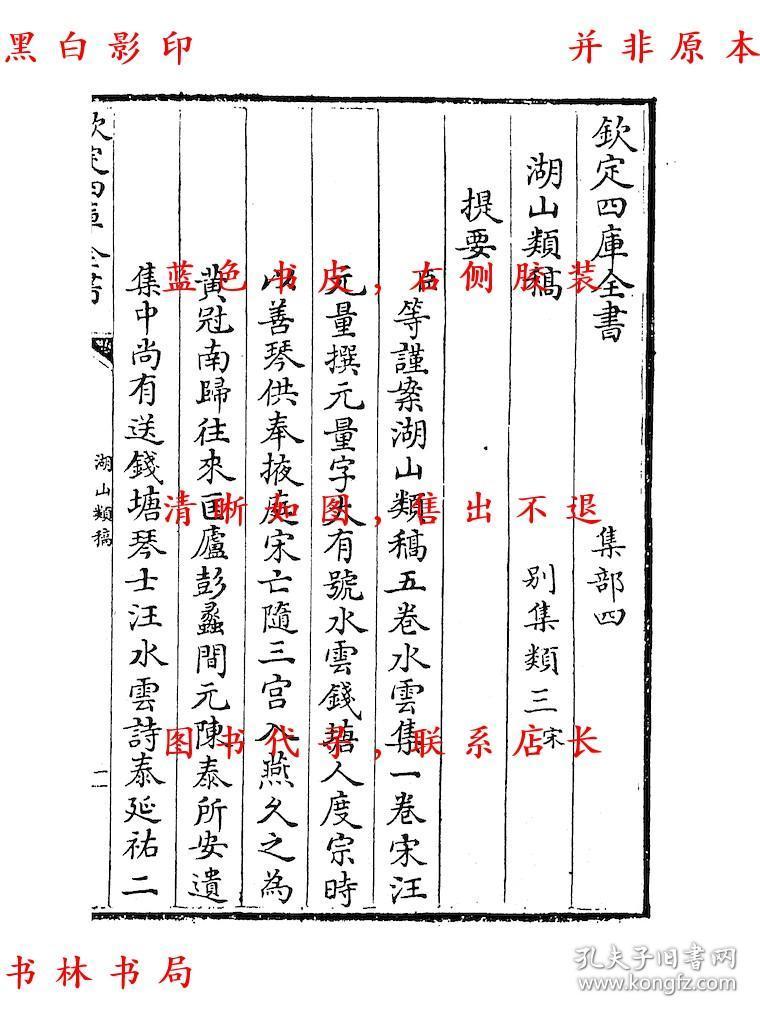 黑白影印
并非原本
欽定四庫全書
集部四
湖山類稿
别集類三宋
提要
臣等謹案湖山類稿五卷水雲集一卷宋汪
元量撰元量字大有號水雲錢塘人度宗時
以善琴供奉掖庭宋亡隨三宫入燕久之為
黄冠南歸往來匡廬彭蠡間元陳泰所安遺
集中尚有送錢塘琴士汪水雲詩泰延祐二
欽定四庫全書
湖山類稿
一
蓝色书皮,右侧胶装
清晰如图,售出不退
图书代寻,联系店长
书林书局
孔夫子旧书网
www.kongfz.com